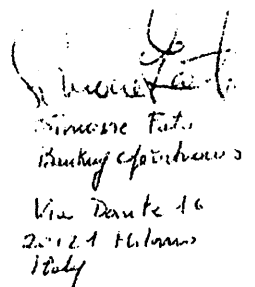 Simone
Simone
Banking Operations
Via Dante 16
20121 Milano
Italy